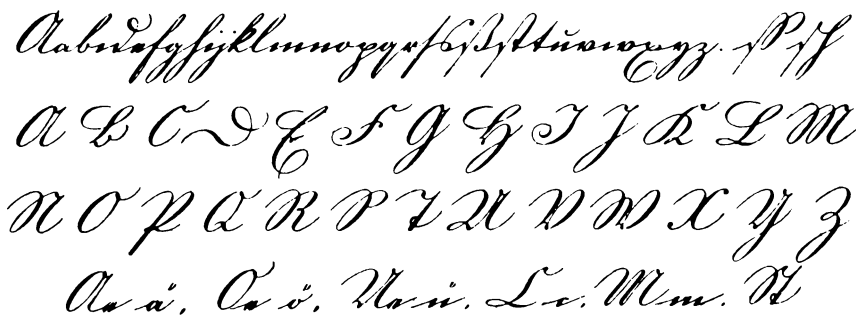 Aabcdefghijklmnopqrſsßſttuvwxyz. ſP ſch
A B C D E F G H I J K L M
N O P Q R S T U V W X Y Z
Ae ä. Oe ö. Ue ü. C c. M m. St